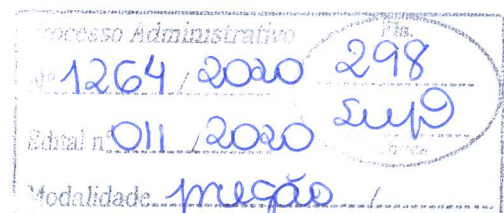 Processo Administrativo Fls.
Nº 1264 / 2020 298
Edital nº 011 / 2020
Modalidade pregão /